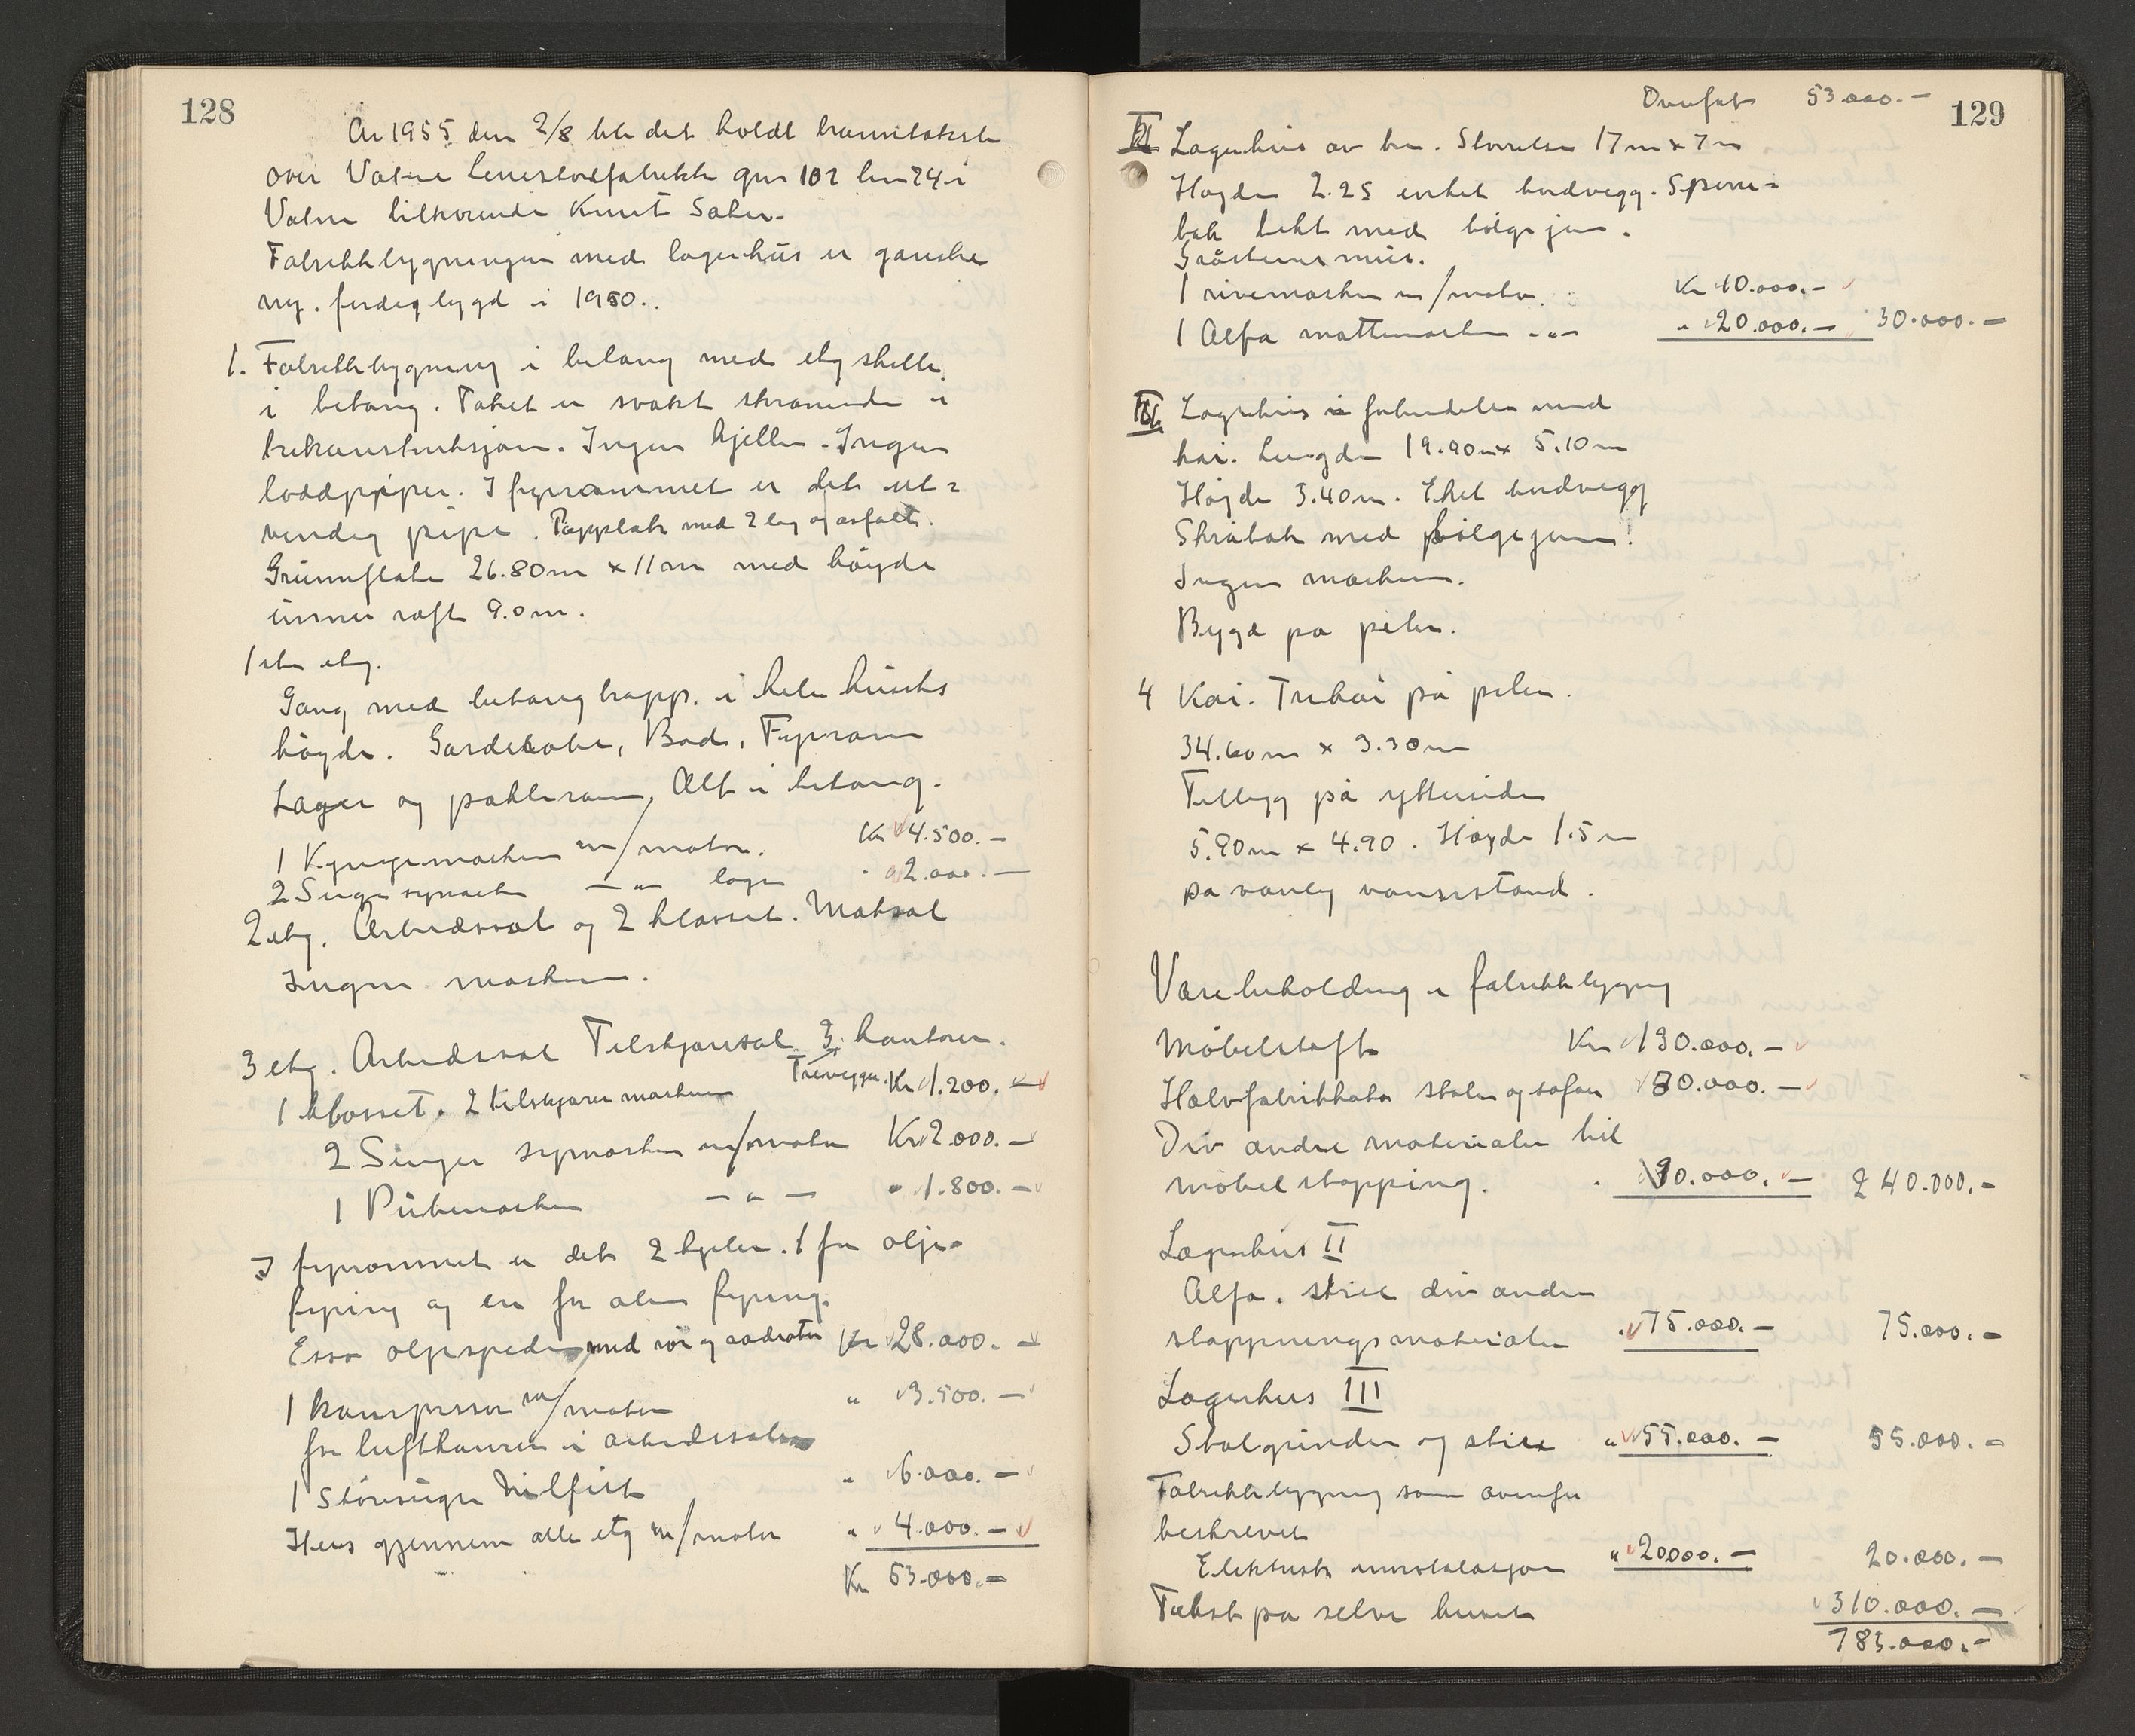 128
År 1955 den 2/8 ble det holdt branntakste
over Vatne Lenestolfabrikk gnr 102 bnr 24 i
Vatne tilhørende Knut Sæter.
Fabrikkbygningen med lagerhus er ganske
ny. ferdig bygd i 1950.
1. Fabrikkbygning i betong med etg skille
i betong. Taket er svakt skrånende i
trekonstruksjon. Ingen kjeller. Ingen
loddpiper. I fyrrommet er det ut=
vendig pipe. Papptak med 2 lag og asfalt.
Grunnflate 26.80 m x 11 m med høyde
under raft 9.0 m.
1ste etg.
Gang med betong trapp. i hele husets
høyde. Garderobe, Bad, Fyrrom
Lager og pakkerom, Alt i betong.
1 K maskin m/motor. Kr 4.500.-
2 Singer symaskin -"- lager " 2.000.-
2 etg. Arbeidssal og 2 klosset. Matsal
Ingen maskin.
3 etg. Arbeidssal Tilskjæresal 3 kontorer.
Trevegger.
1 klosset. 2 tilskjærer maskiner Kr 1.200.-
2 Singer symaskin m/motor Kr 2.000.-
1 maskin -"- " 1.800.-
I fyrrommet er det 2 kjeler. 1 for olje-
fyring og en for alm fyring.
Esso oljespeder med rør og radiator Kr 28.000.-
1 kompressor m/motor " 3.500.-
for luftkanner i arbeidssalen
1 Støvsuger Nilfisk " 6.000.-
Heis gjennem alle etg m/motor " 4.000.-
Kr 53.000.-
129
Overført 53.000.-
II Lagerhus av tre. Størrelse 17 m x 7 m
Høyde 2.25 enkel bordvegg. Sperre=
tak tekt med bølgejern.
Gråsteinsmur.
1 rivemaskin m/motor. Kr 10.000.-
1 Alfa mattemaskin -"- " 20.000.- 30.000.-
III Lagerhus i forbindelse med
kai. Lengde 19.90 m x 5.10 m
Høyde 3.40 m. Ekel bordvegg
Skråtak med bølgejern.
Ingen maskin.
Bygd på peler.
4 Kai. Trekai på peler.
34.60 m x 3.30 m
Tillegg på yttersiden
5.90 m x 4.90. Høyde 1.5 m
på vanlig vannstand.
Varebeholding i fabrikkbygning
Møbelstoff Kr 130.000.-
Halvfabrikkata stoler og sofaer 80.000.-
Div andre materialer til
møbelstopping. " 30.000.- 240.000.-
Lagerhus II
Alfa. strie div andre
stoppningsmaterialer " 75.000.- 75.000.-
Lagerhus III
Stolgrinder og strie " 55.000.- 55.000.-
Fabrikkbygning som ovenfor
beskrevet
Elektrisk innstalasjon " 20000.- 20.000.-
Takst på selve huset 310.000.-
783.000.-